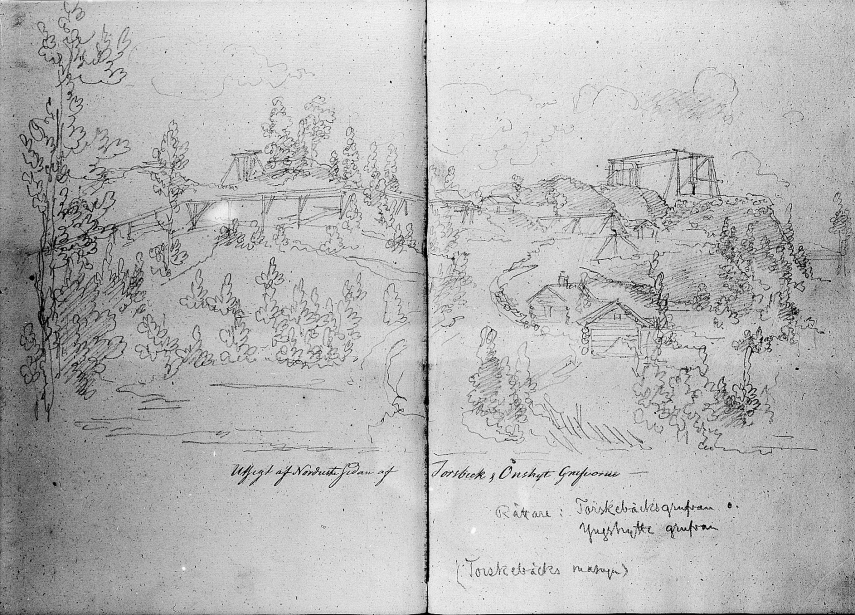 Utsigt af Nordvestsidan af Torsbeck & Önshyt Grufvorne —
Rättare : Torskebäcksgrufvan o.
Yngshytte grufvan
(Torskebäcks masugn)